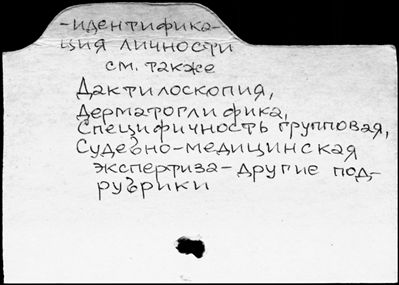 -идентифика-
ция личности
см. также
Дактилоскопия,
Дерматоглифика,
Специфичность групповая,
Судебно-медицинская
экспертиза-другие под-
рубрики